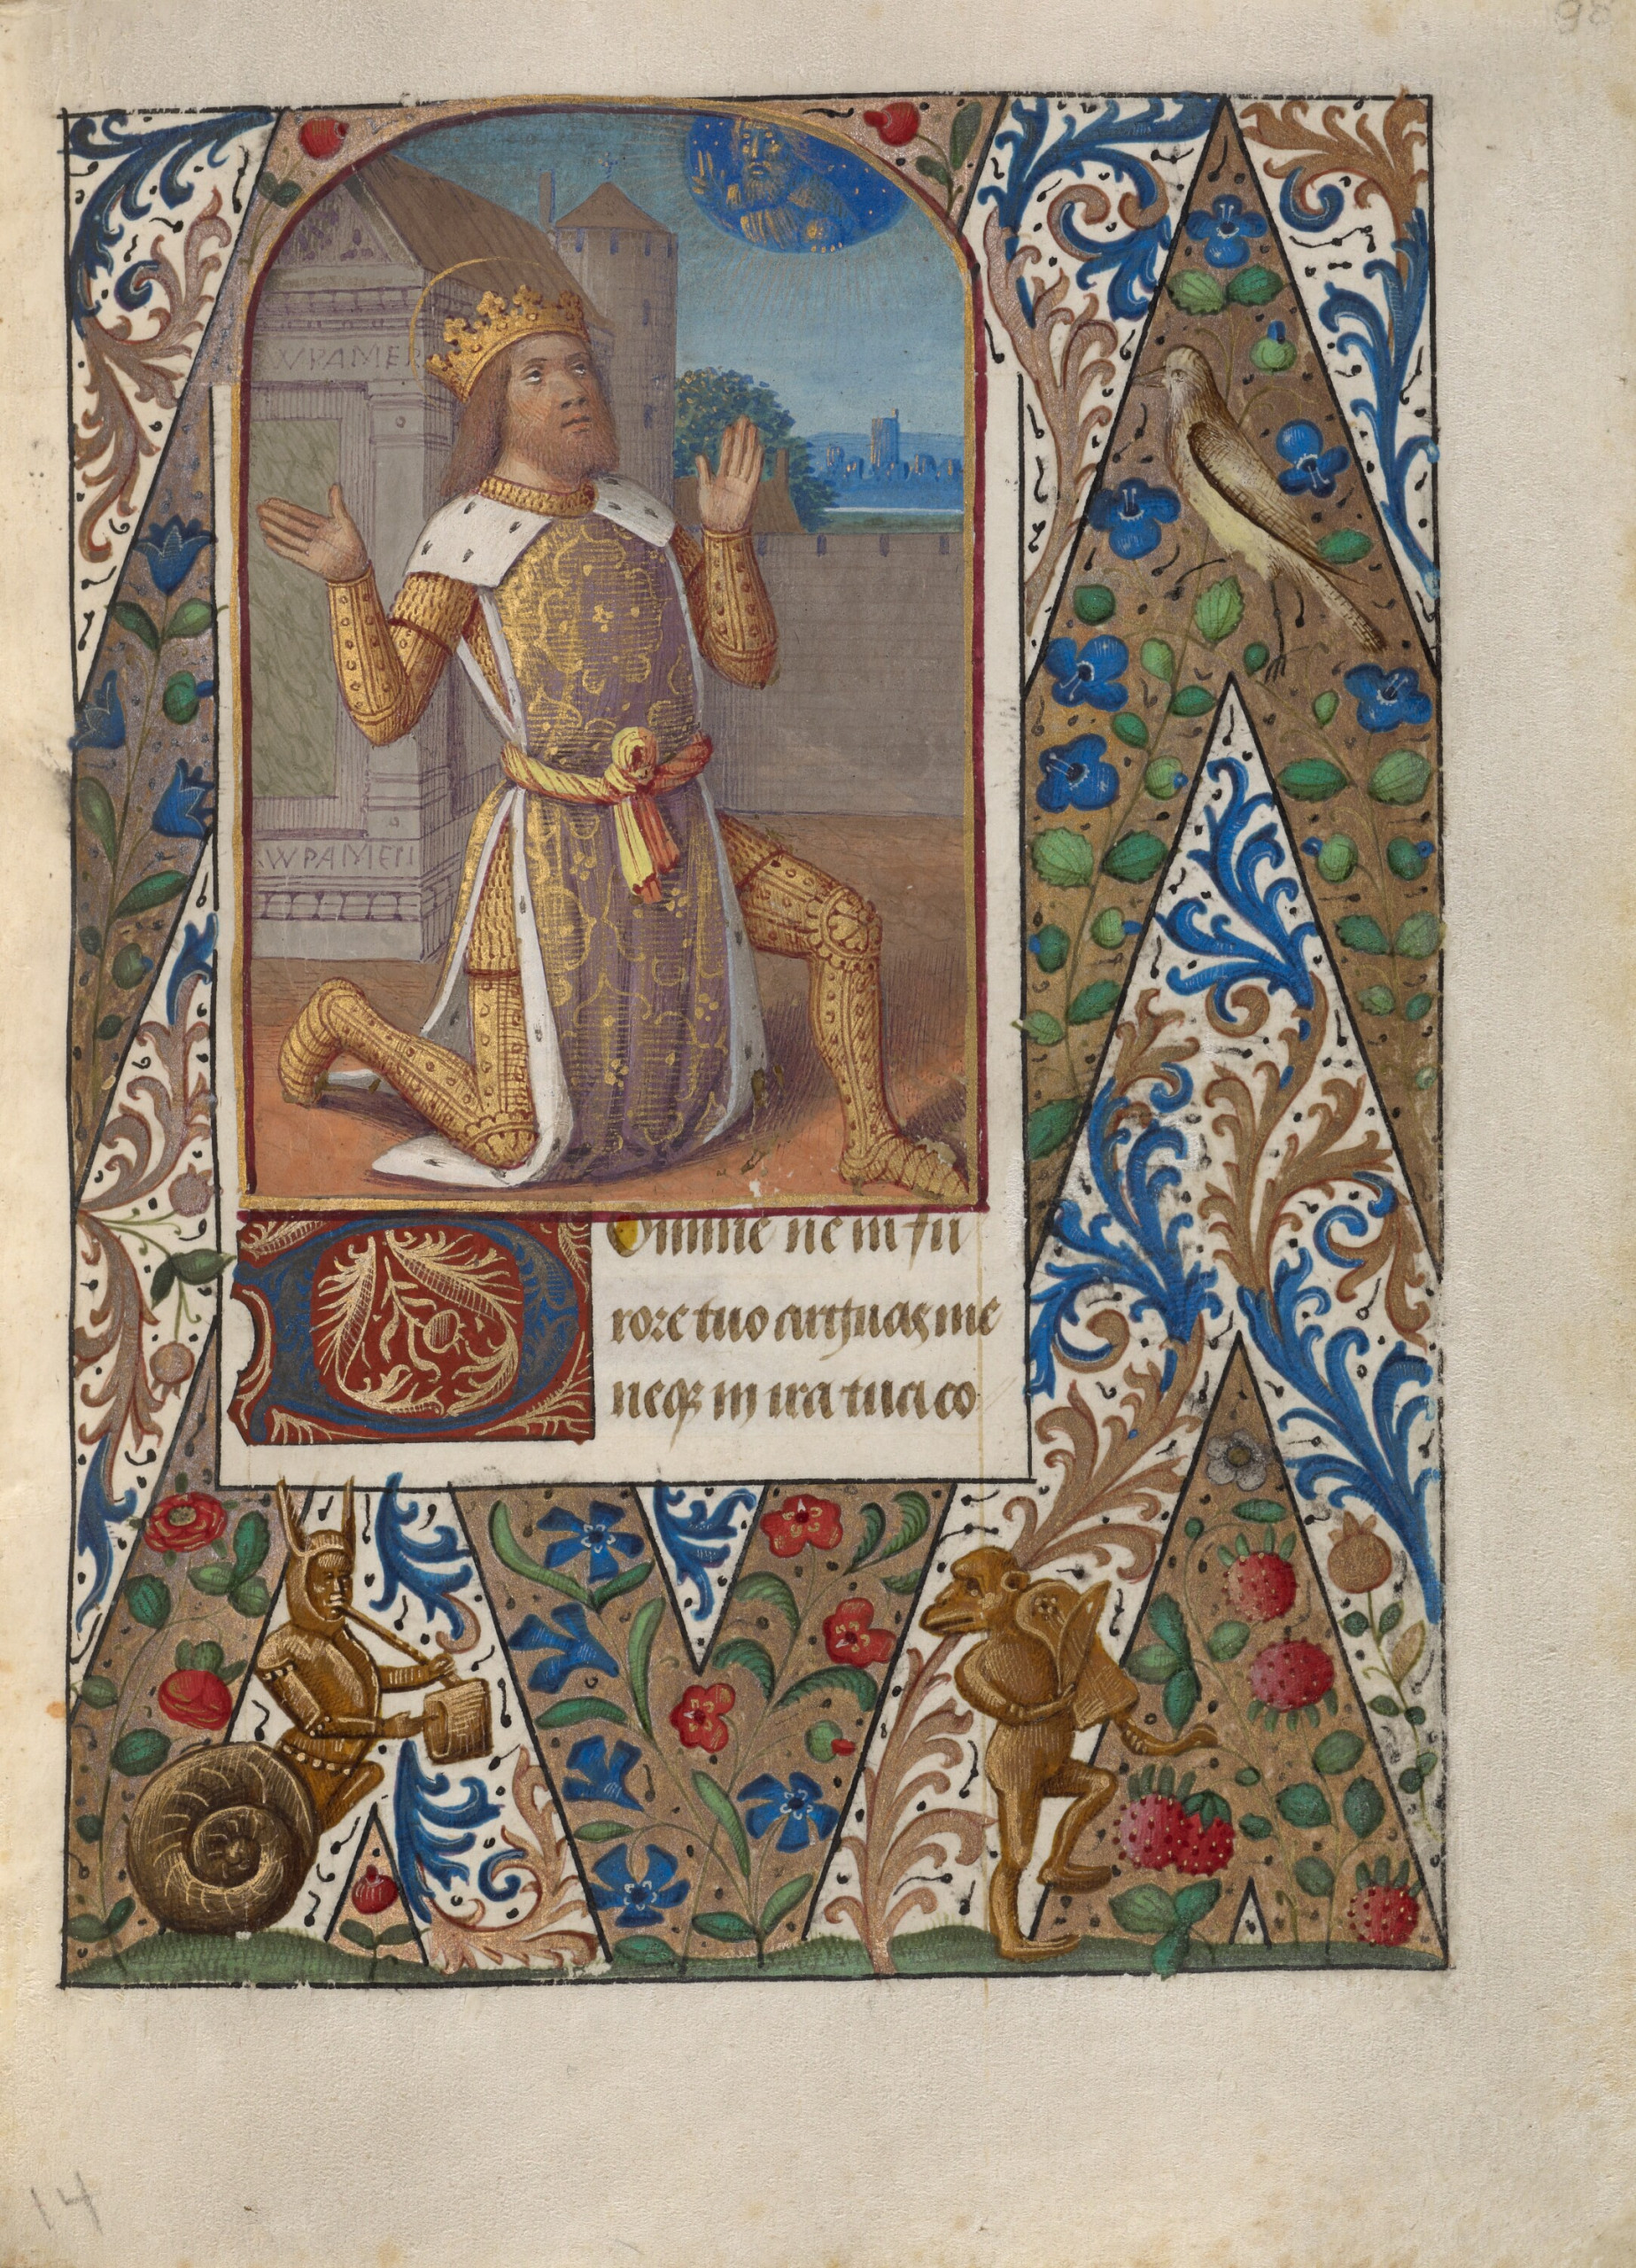 98
WPAMER
WPAMEN
Domine ne in fu
rore tuo arguas me
neqꝫ in ira tua co
14